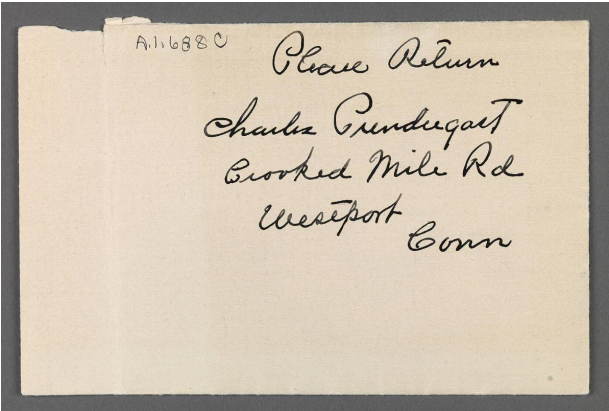 A.1.688 C
Please Return
Charles Prendergast
Crooked Mile Rd
Westport
Conn